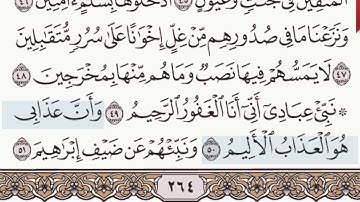 ٱلْمُتَّقِينَ فِى جَنَّٰتٍ وَعُيُونٍ ٤٥ ٱدْخُلُوهَا بِسَلَٰمٍ ءَامِنِينَ ٤٦
وَنَزَعْنَا مَا فِى صُدُورِهِم مِّنْ غِلٍّ إِخْوَٰنًا عَلَىٰ سُرُرٍ مُّتَقَٰبِلِينَ
٤٧ لَا يَمَسُّهُمْ فِيهَا نَصَبٌ وَمَا هُم مِّنْهَا بِمُخْرَجِينَ ٤٨
۞ نَبِّئْ عِبَادِىٓ أَنِّىٓ أَنَا ٱلْغَفُورُ ٱلرَّحِيمُ ٤٩ وَأَنَّ عَذَابِى
هُوَ ٱلْعَذَابُ ٱلْأَلِيمُ ٥٠ وَنَبِّئْهُمْ عَن ضَيْفِ إِبْرَٰهِيمَ ٥١
٢٦٤